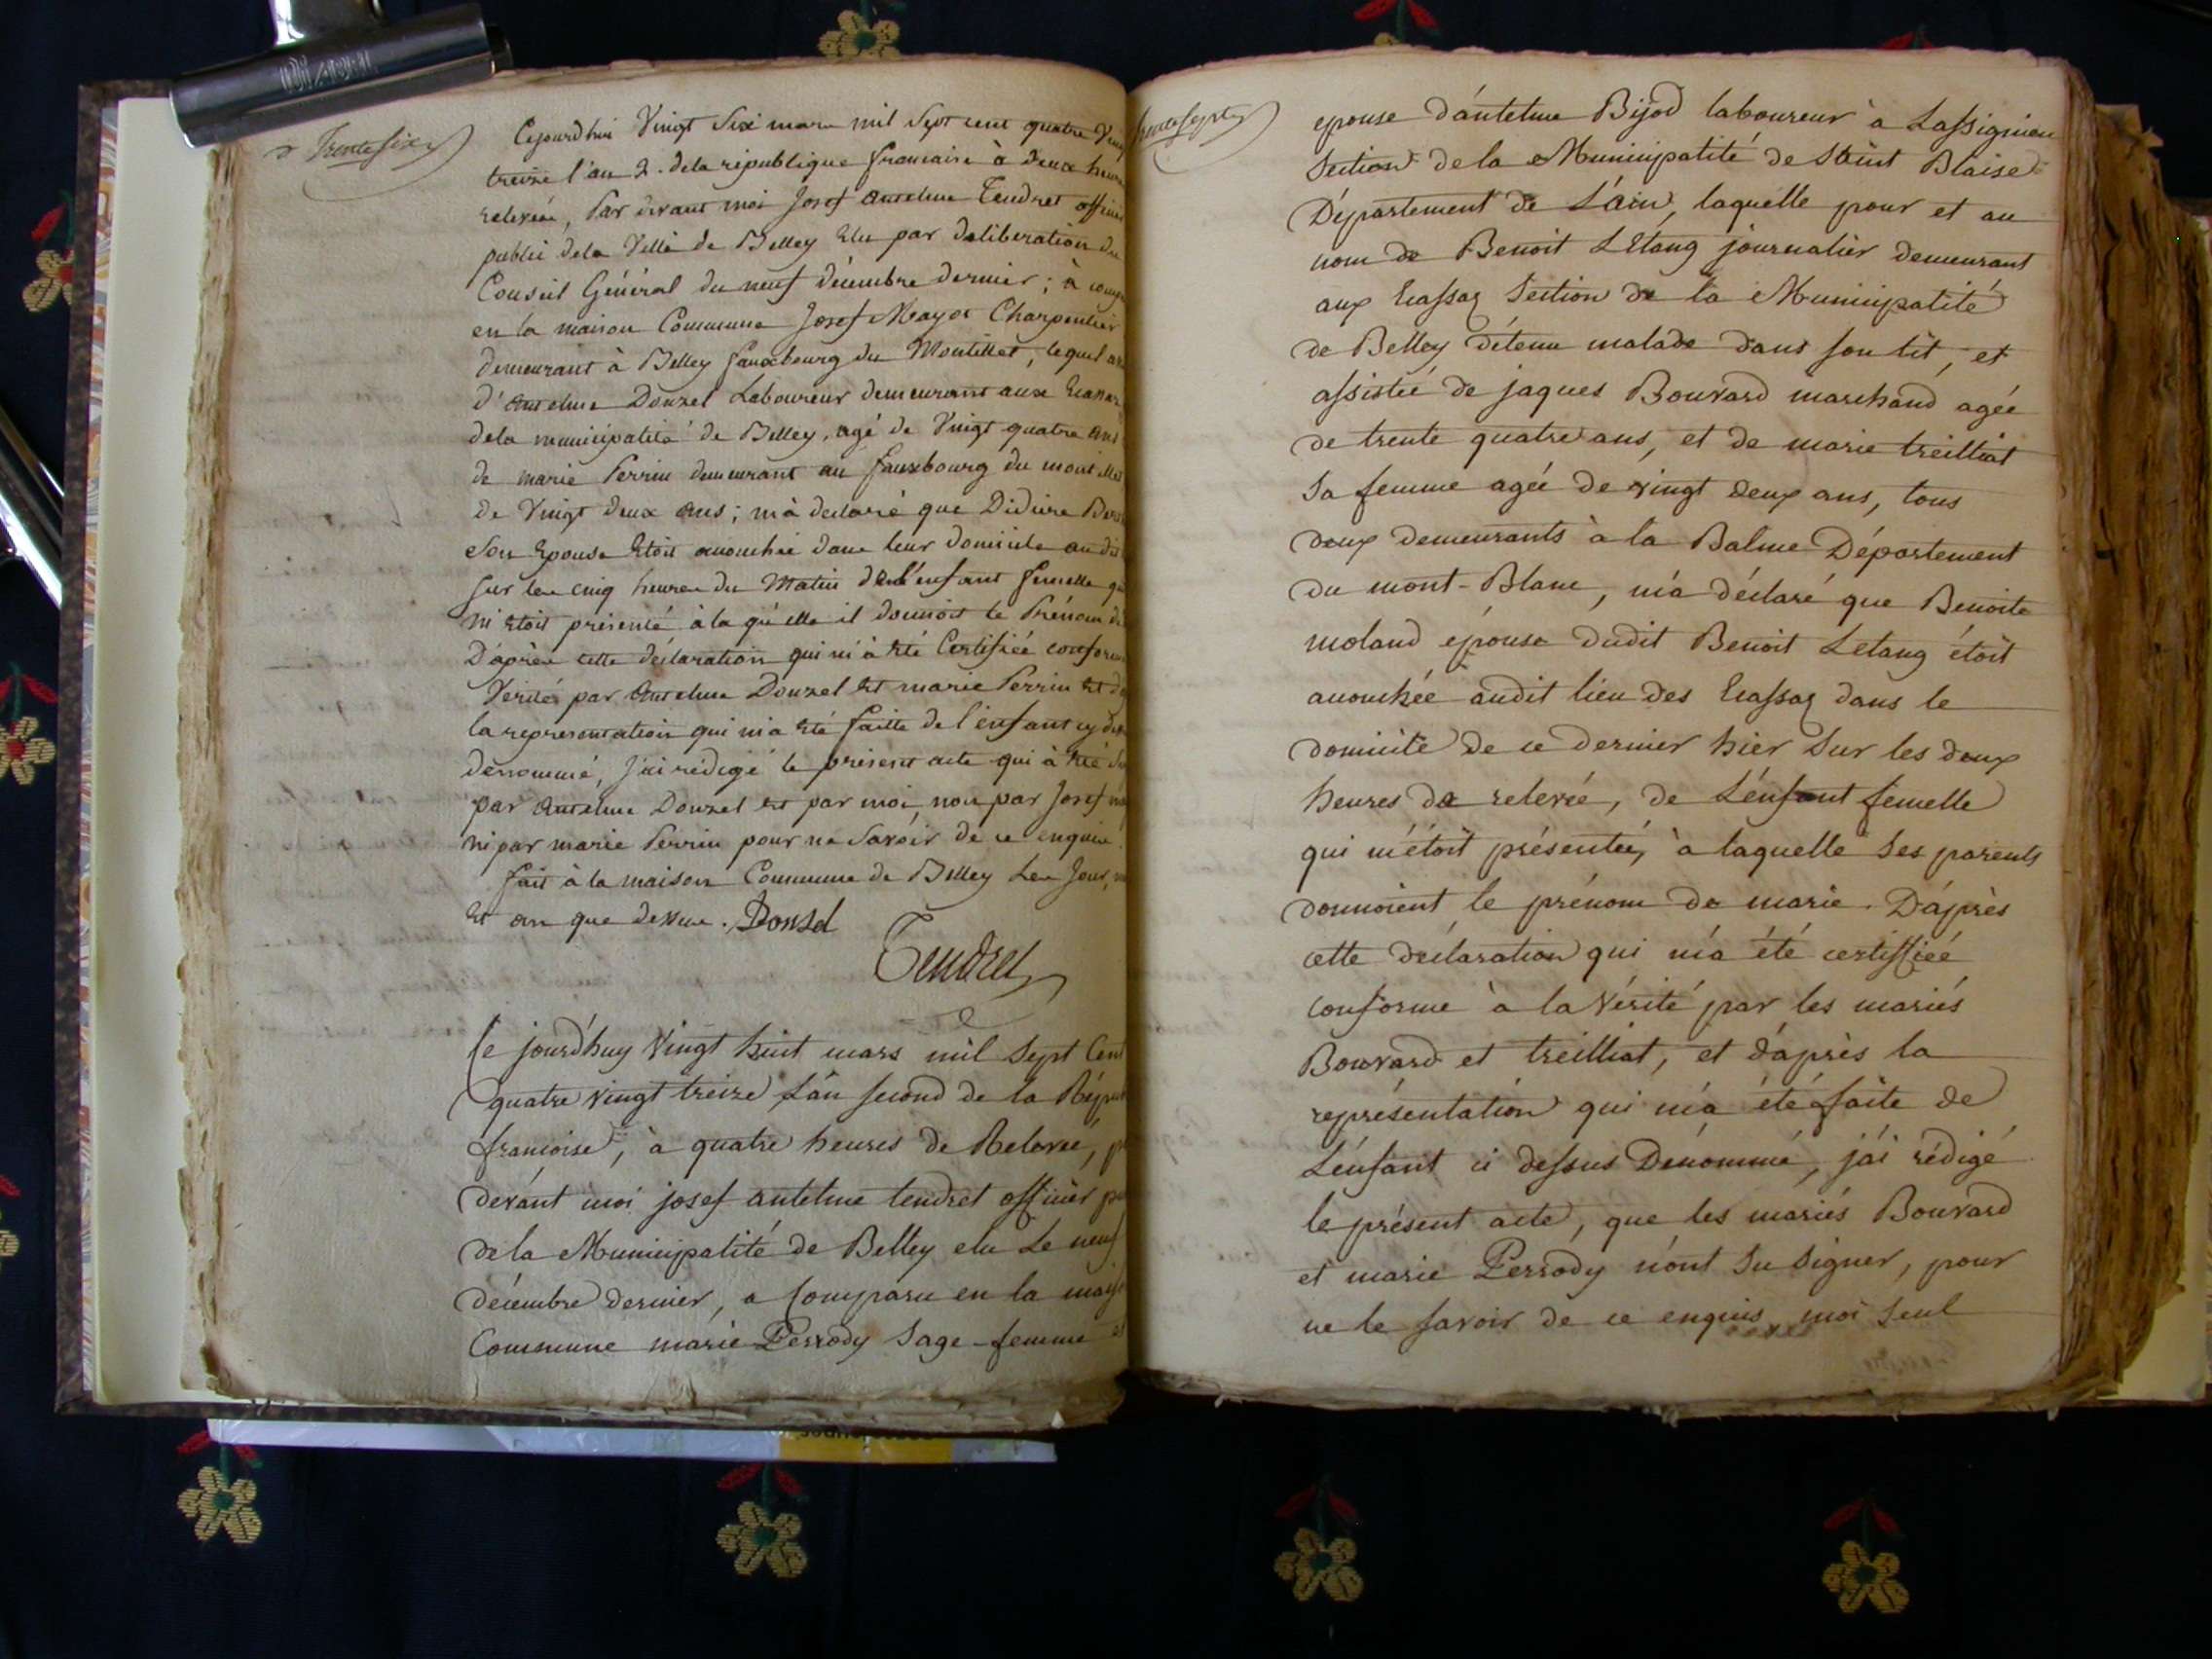 DIABEL
Trente six
Cejourd'hui Vingt Six mars mil Sept cent quatre Vingt
treize l'an 2. de la république francaise à deux heures
relevée, Par devant moi Josef Antelme Tendret officier
public de la Ville de Belley Elu par deliberation du
Conseil Général du neuf décembre dernier ; à comp
en la maison Commune Josef Mayet Charpentier
demeurant à Belley fauxbourg du Montillet, lequel as
d'Antelme Donzel Laboureur demeurant aux Ecassaz
de la municipalité de Belley, agé de Vingt quatre ans
de marie Perrin demeurant au fauxbourg du montillet
de Vingt deux ans ; m'à declaré que Didiere
Son Epouse Etoit accouchée dans leur domicile au dit
sur les cinq heures du Matin de l'enfant femelle qui
m'Etoit présenté à la qu'elle il donnoit le Prénom de
D'après cette déclaration qui m'à été Certifiée conforme
Vérité par Antelme Donzel Et marie Perrin Et d
la representation qui m'a Eté faitte de l'enfant cy dess
denommé, J'ai rédigé le présent acte qui à Eté
par Antelme Donzel Et par moi, non par Josef
ni par marie Perrin pour ne Savoir de ce enquis.
fait à la maison Commune de Belley Les Jour,
Et an que dessus. Donzel
Tendret
Ce jourd'huy vingt huit mars mil Sept Cent
quatre vingt treize L'an second de la Répub
francoise, à quatre heures de Relevée, p
devant moi josef antelme tendret officier pu
de la Municipalité de Belley elu Le neuf
décembre dernier, a Comparu en la mais
Commune marie Perrody Sage-femme
trente sept
epouse d'antelme Bijod laboureur à Lassignieu
Section de la Municipalité de Saint Blaise
Département de L'ain, laquelle pour et au
nom de Benoit LEtang journalier demeurant
aux Ecassaz Section de la Municipalité
de Belley détenu malade dans son lit, et
assistée de jaques Bouvard marchand agée
de trente quatre ans, et de marie treilliat
Sa femme agée de vingt deux ans, tous
deux demeurants à la Balme Département
du mont-Blanc, m'a déclaré que Benoite
moland epouse dudit Benoit Letang étoit
accouchée audit lieu des Ecassaz dans le
domicile de ce dernier hier Sur les deux
heures de relevée, de L'enfant femelle
qui m'étoit présentée, à laquelle Ses parents
donnoient le prénom de marie. D'après
cette déclaration qui m'a été certiffiée
conforme à la Vérité par les mariés
Bouvard et treilliat, et d'après la
représentation qui m'a été faite de
L'enfant ci dessus Dénommé, j'ai rédigé
le présent acte, que les mariés Bouvard
et marie Perrody n'ont Su signer, pour
ne le savoir de ce enquis moi Seul